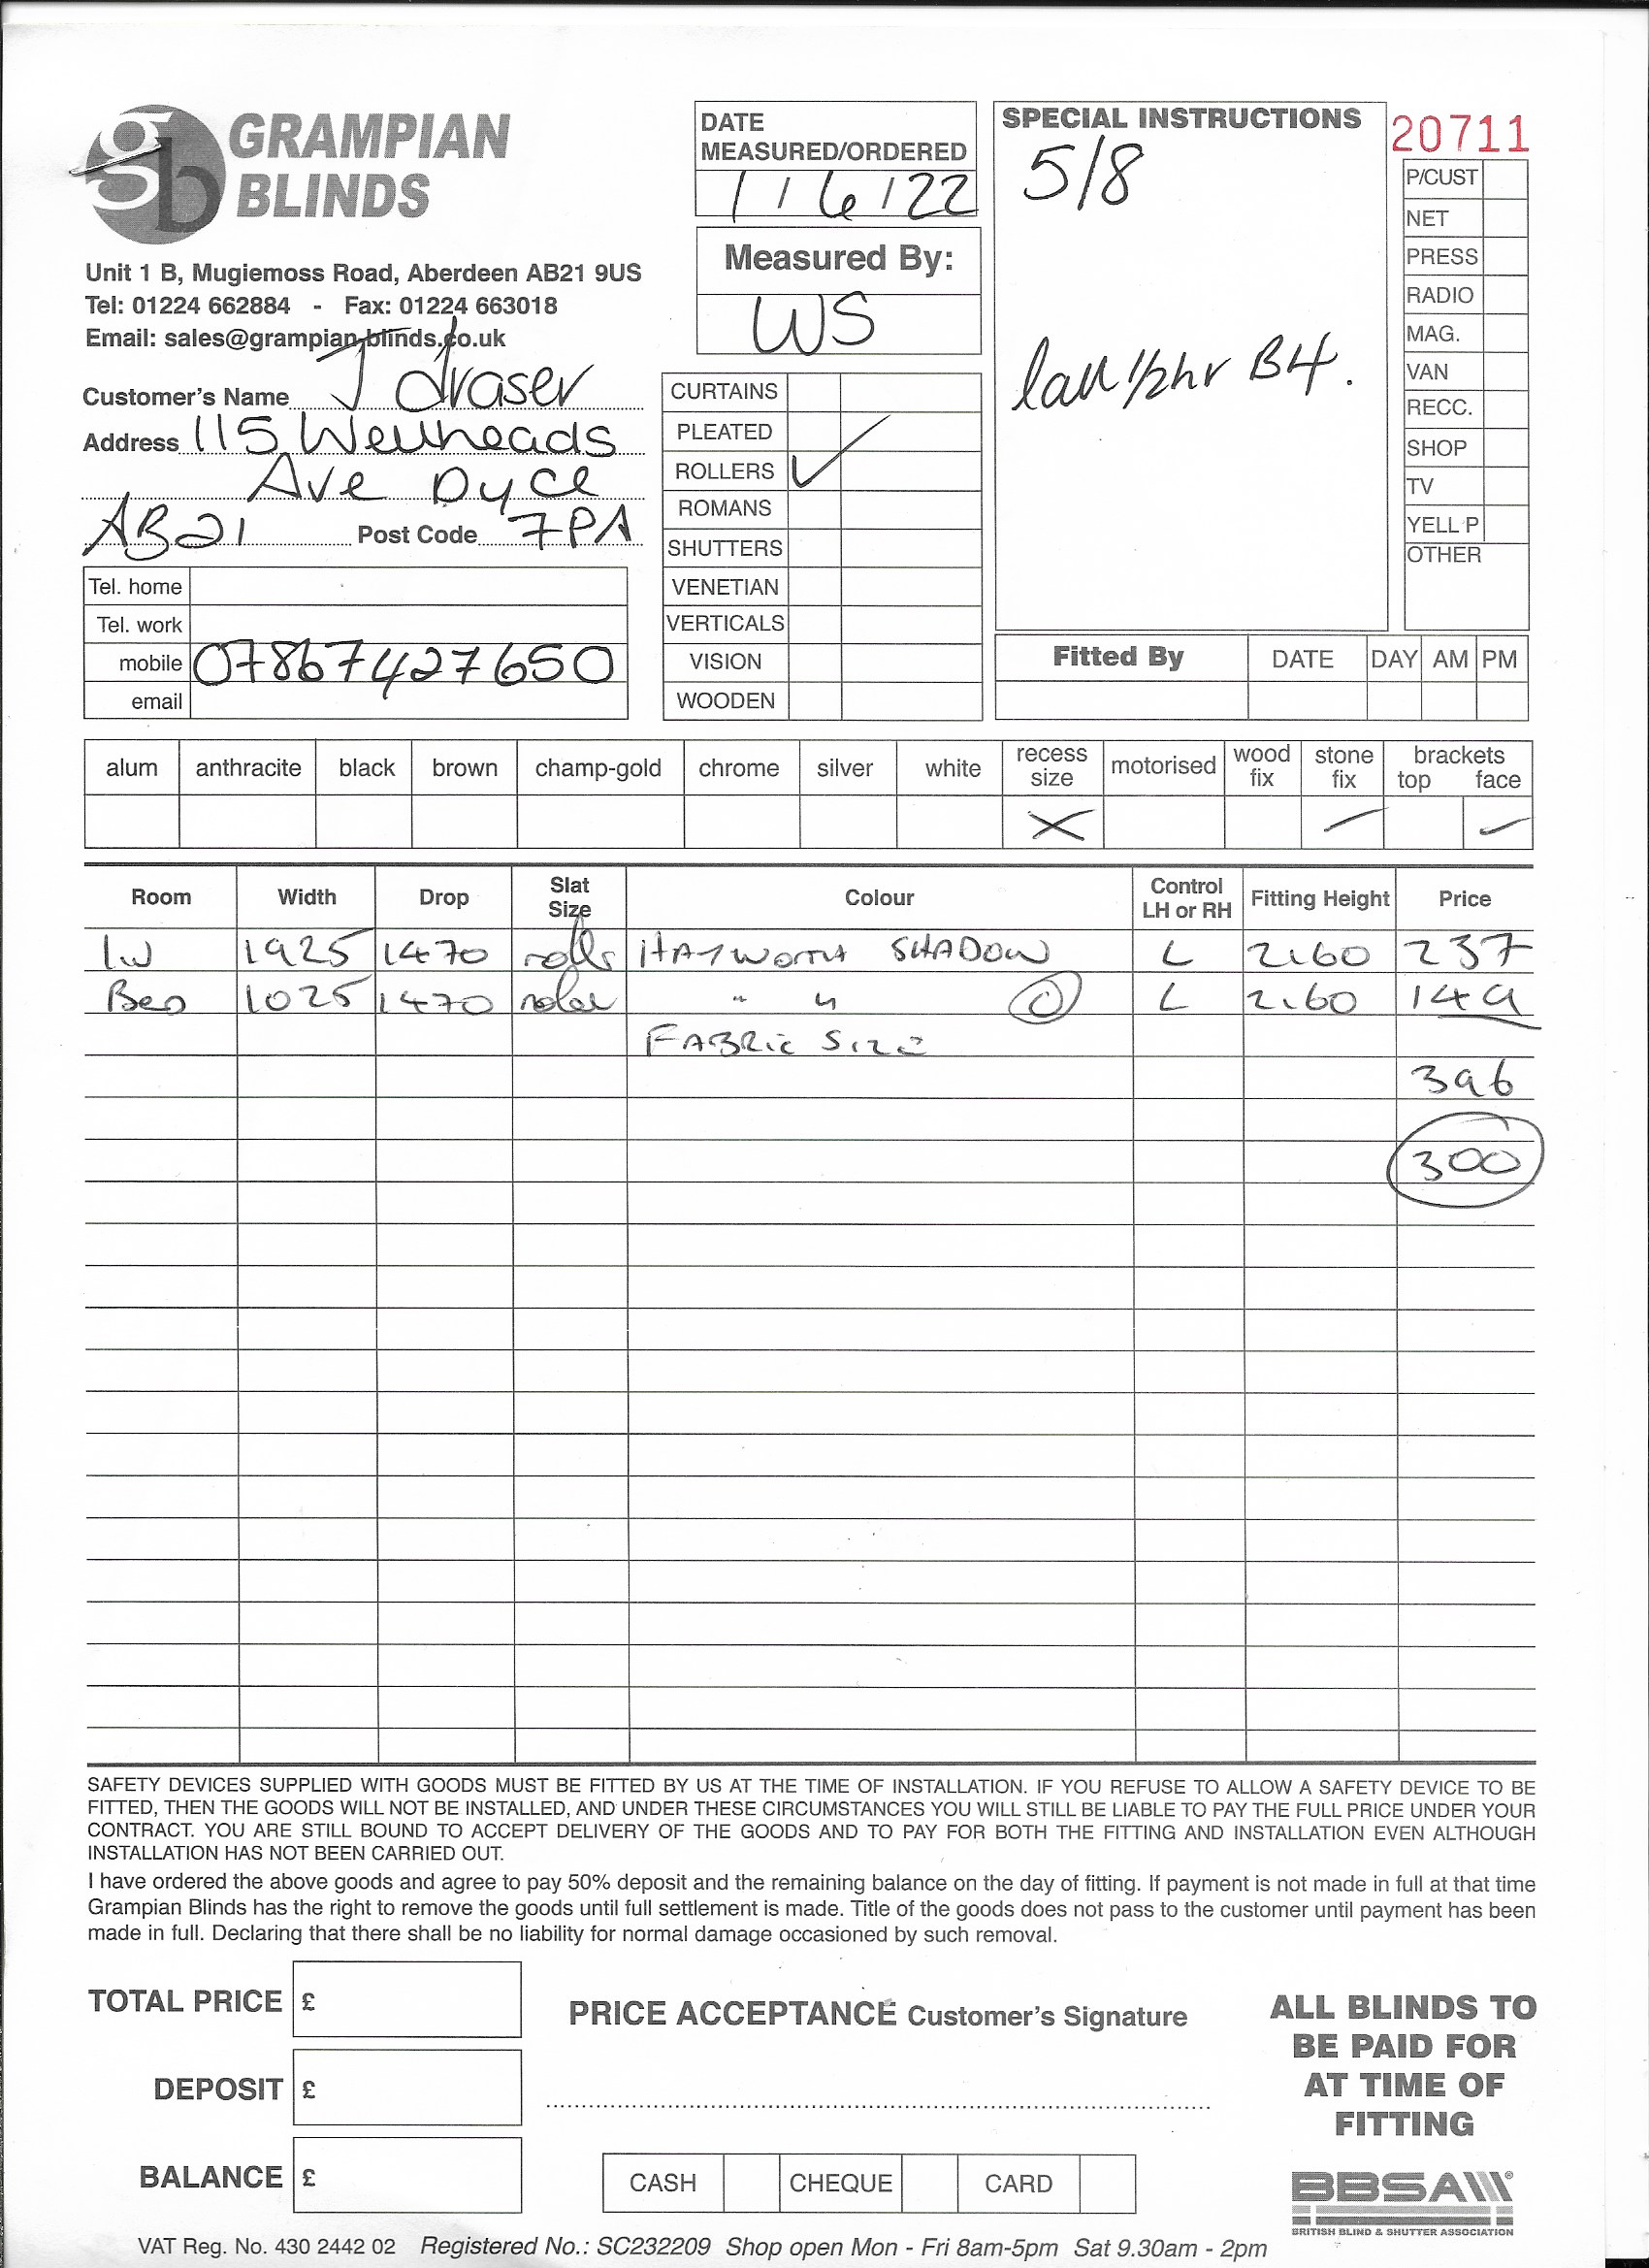 gb GRAMPIAN
BLINDS
Unit 1 B, Mugiemoss Road, Aberdeen AB21 9US
Tel: 01224 662884 - Fax: 01224 663018
Email: sales@grampian-blinds.co.uk
Customer's Name J fraser
Address 115 Wellheads
Ave Dyce
AB21 Post Code 7PA
Tel. home
Tel. work
mobile 07867427650
email
DATE
MEASURED/ORDERED
1/6/22
Measured By:
WS
CURTAINS
PLEATED
ROLLERS ✓
ROMANS
SHUTTERS
VENETIAN
VERTICALS
VISION
WOODEN
SPECIAL INSTRUCTIONS
5/8
Call 1/2hr B4.
20711
P/CUST
NET
PRESS
RADIO
MAG.
VAN
RECC.
SHOP
TV
YELL P
OTHER
Fitted By DATE DAY AM PM
alum anthracite black brown champ-gold chrome silver white recess size motorised wood fix stone fix brackets top face
Room Width Drop Slat Size Colour Control LH or RH Fitting Height Price
1925 1470 HAYWORTH SHADOW L 2.60 237
Bed 1025 1470 roller " " L 2.60 149
FABRIC SIZE
396
300
SAFETY DEVICES SUPPLIED WITH GOODS MUST BE FITTED BY US AT THE TIME OF INSTALLATION. IF YOU REFUSE TO ALLOW A SAFETY DEVICE TO BE
FITTED, THEN THE GOODS WILL NOT BE INSTALLED, AND UNDER THESE CIRCUMSTANCES YOU WILL STILL BE LIABLE TO PAY THE FULL PRICE UNDER YOUR
CONTRACT. YOU ARE STILL BOUND TO ACCEPT DELIVERY OF THE GOODS AND TO PAY FOR BOTH THE FITTING AND INSTALLATION EVEN ALTHOUGH
INSTALLATION HAS NOT BEEN CARRIED OUT.
I have ordered the above goods and agree to pay 50% deposit and the remaining balance on the day of fitting. If payment is not made in full at that time
Grampian Blinds has the right to remove the goods until full settlement is made. Title of the goods does not pass to the customer until payment has been
made in full. Declaring that there shall be no liability for normal damage occasioned by such removal.
TOTAL PRICE £
DEPOSIT £
BALANCE £
PRICE ACCEPTANCE Customer's Signature
CASH CHEQUE CARD
ALL BLINDS TO
BE PAID FOR
AT TIME OF
FITTING
BBSA
BRITISH BLIND & SHUTTER ASSOCIATION
VAT Reg. No. 430 2442 02 Registered No.: SC232209 Shop open Mon - Fri 8am-5pm Sat 9.30am - 2pm